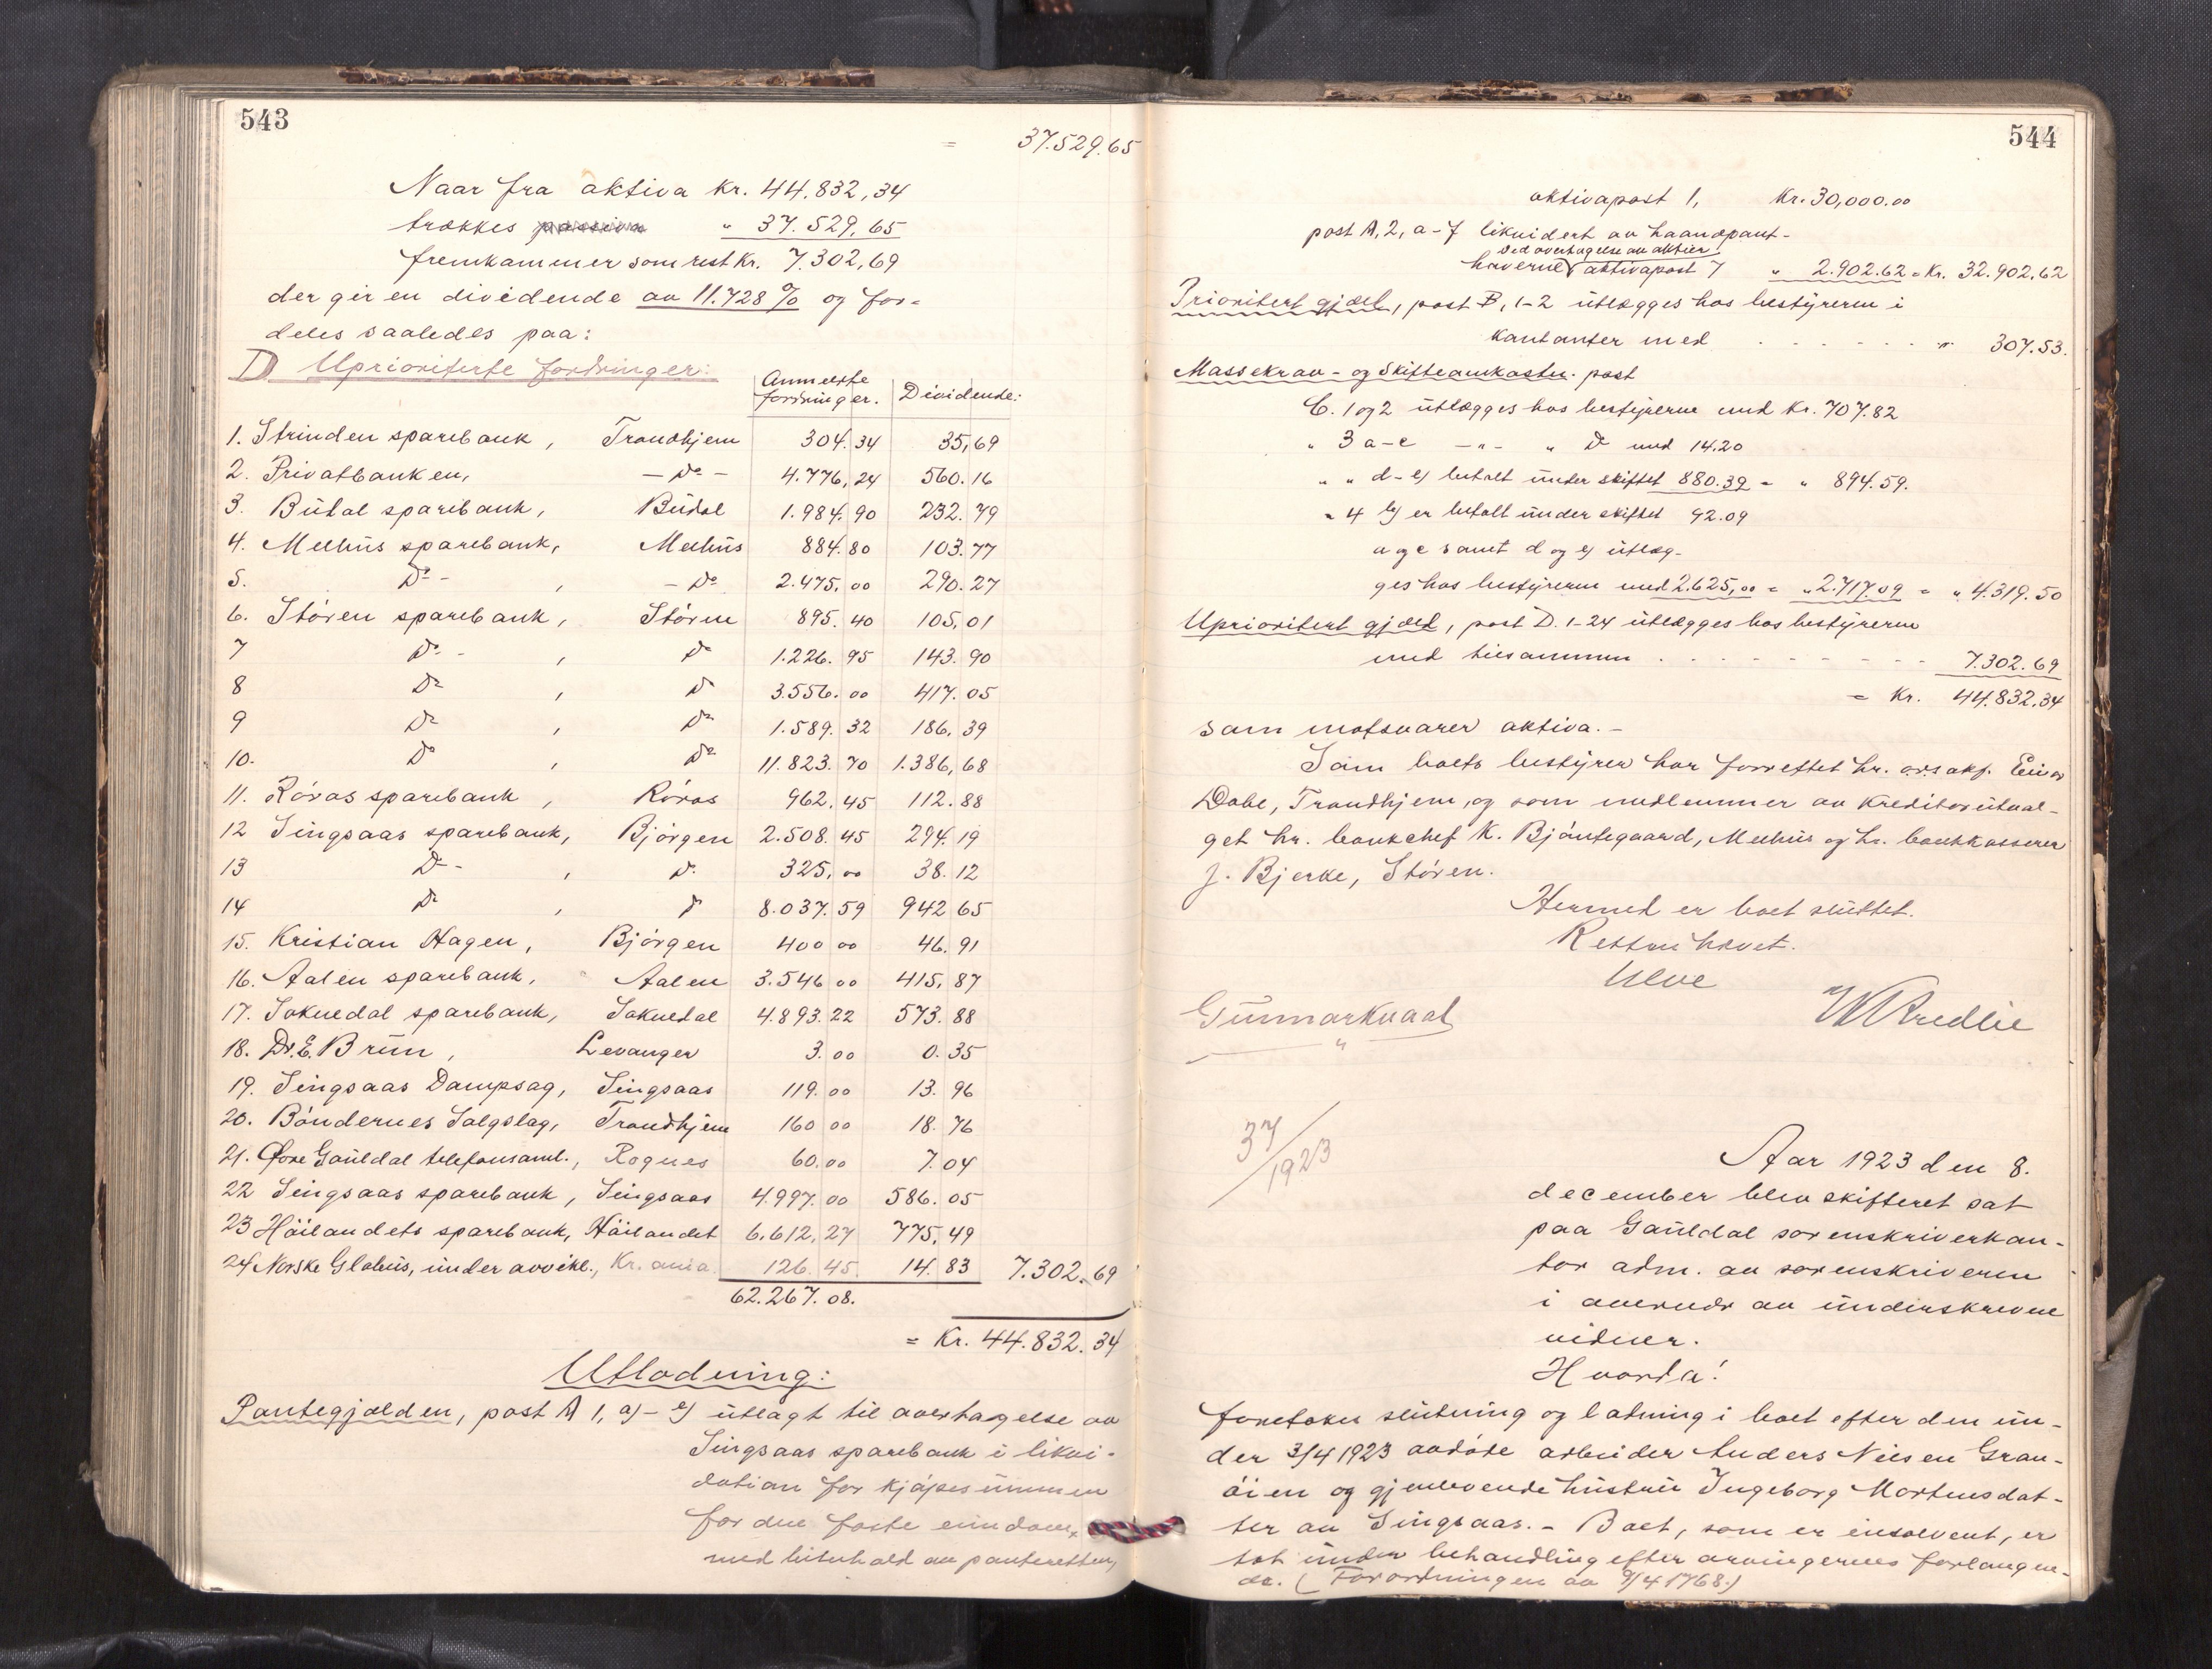 543
= 37.529.65
Naar fra aktiva kr. 44.832,34
trækkes passiva " 37.529,65
fremkommer som rest Kr. 7.302,69
der gir en dividende av 11.728 % og for-
deles saaledes paa:
D Uprioriterte fordringer:
Anmeldte fordringer. Dividende:
1. Strinden sparebank, Trondhjem 304.34 35,69
2. Privatbanken, - Do - 4.776,24 560.16
3. Budal sparebank, Budal 1.984.90 232.79
4. Melhus sparebank, Melhus 884.80 103.77
5. Do - , - Do 2.475.00 290.27
6. Stören sparebank, Stören 895.40 105,01
7 Do - , Do 1.226.95 143.90
8 Do , Do 3.556.00 417.05
9 Do , Do 1.589.32 186,39
10. Do , Do 11.823.70 1.386,68
11. Röros sparebank, Röros 962.45 112.88
12 Singsaas sparebank, Bjørgen 2.508.45 294.19
13 Do - , Do 325.00 38.12
14 Do , Do 8.037.59 942 65
15. Kristian Hagen, Bjørgen 400 00 46.91
16. Aalen sparebank, Aalen 3.546 00 415,87
17. Soknedal sparebank, Soknedal 4.893.22 573.88
18. Dr. E. Brun, Levanger 3.00 0.35
19. Singsaas Dampsag, Singsaas 119.00 13.96
20. Bøndernes Salgslag, Trondhjem 160 00 18.76
21. Øvre Gauldal telefonsaml., Rognes 60.00 7.04
22 Singsaas sparebank, Singsaas 4.997.00 586.05
23 Höilandets sparebank, Höilandet 6.612,27 775,49
24 Norske Globus, under avvikl., Kr.ania. 126.45 14.83 7.302.69
62.267.08.
= Kr. 44.832.34
Utlodning:
Pantegjælden, post A 1, a) - e) utlagt til overtagelse av
Singsaas sparebank i likvi-
dation for kjøpesummen
for den faste eiendom,
med bibehold av panteretten,
544
aktivapost 1, Kr. 30,000.00
post A, 2, a-f likvidert av haandpant-
ved overtagelse av aktier
haverne aktivapost 7 " 2.902.62 = Kr. 32.902,62
Prioritert gjæld, post B, 1-2 utlægges hos bestyreren i
kontanter med . . . . . . " 307.53.
Massekrav- og skifteomkostn. post
C. 1 og 2 utlægges hos bestyrerne med Kr. 707.82
" 3 a-c - " - " Do med 14.20
" " d-e) betalt under skiftet 880.39 = " 894.59.
" 4 b) er betalt under skiftet 92.09
a og c samt d og e) utlæg-
ges hos bestyreren med 2.625,00 = " 2.717.09 = " 4.319.50
Uprioritert gjæld, post D. 1-24 utlægges hos bestyreren
med tilsammen . . . . . . . . 7.302.69
= Kr. 44.832.34
som motsvarer aktiva. -
Som boets bestyrer har forrettet hr. o.r.sakf. Einar
Dahl, Trondhjem, og som medlemmer av kreditorutval-
get hr. bankchef K. Bjøntegaard, Melhus og hr. bankkasserer
J. Bjerke, Støren.
Hermed er boet sluttet.
Retten hævet.
Ulve
Gunnar Kvaal
37/1923
Aar 1923 den 8.
december blev skifteret sat
paa Gauldal sorenskriverkon-
tor adm. av sorenskriveren
i overvær av underskrevne
vidner.
Hvorda!
foretokes slutning og lodning i boet efter den un-
der 3/4 1923 avdøde arbeider Anders Nilsen Gran-
øien og gjenlevende hustru Ingeborg Mortensdat-
ter av Singsaas. - Boet, som er insolvent, er
tat under behandling efter arvingernes forlangen-
de. (Forordningen av 9/4 1768.)